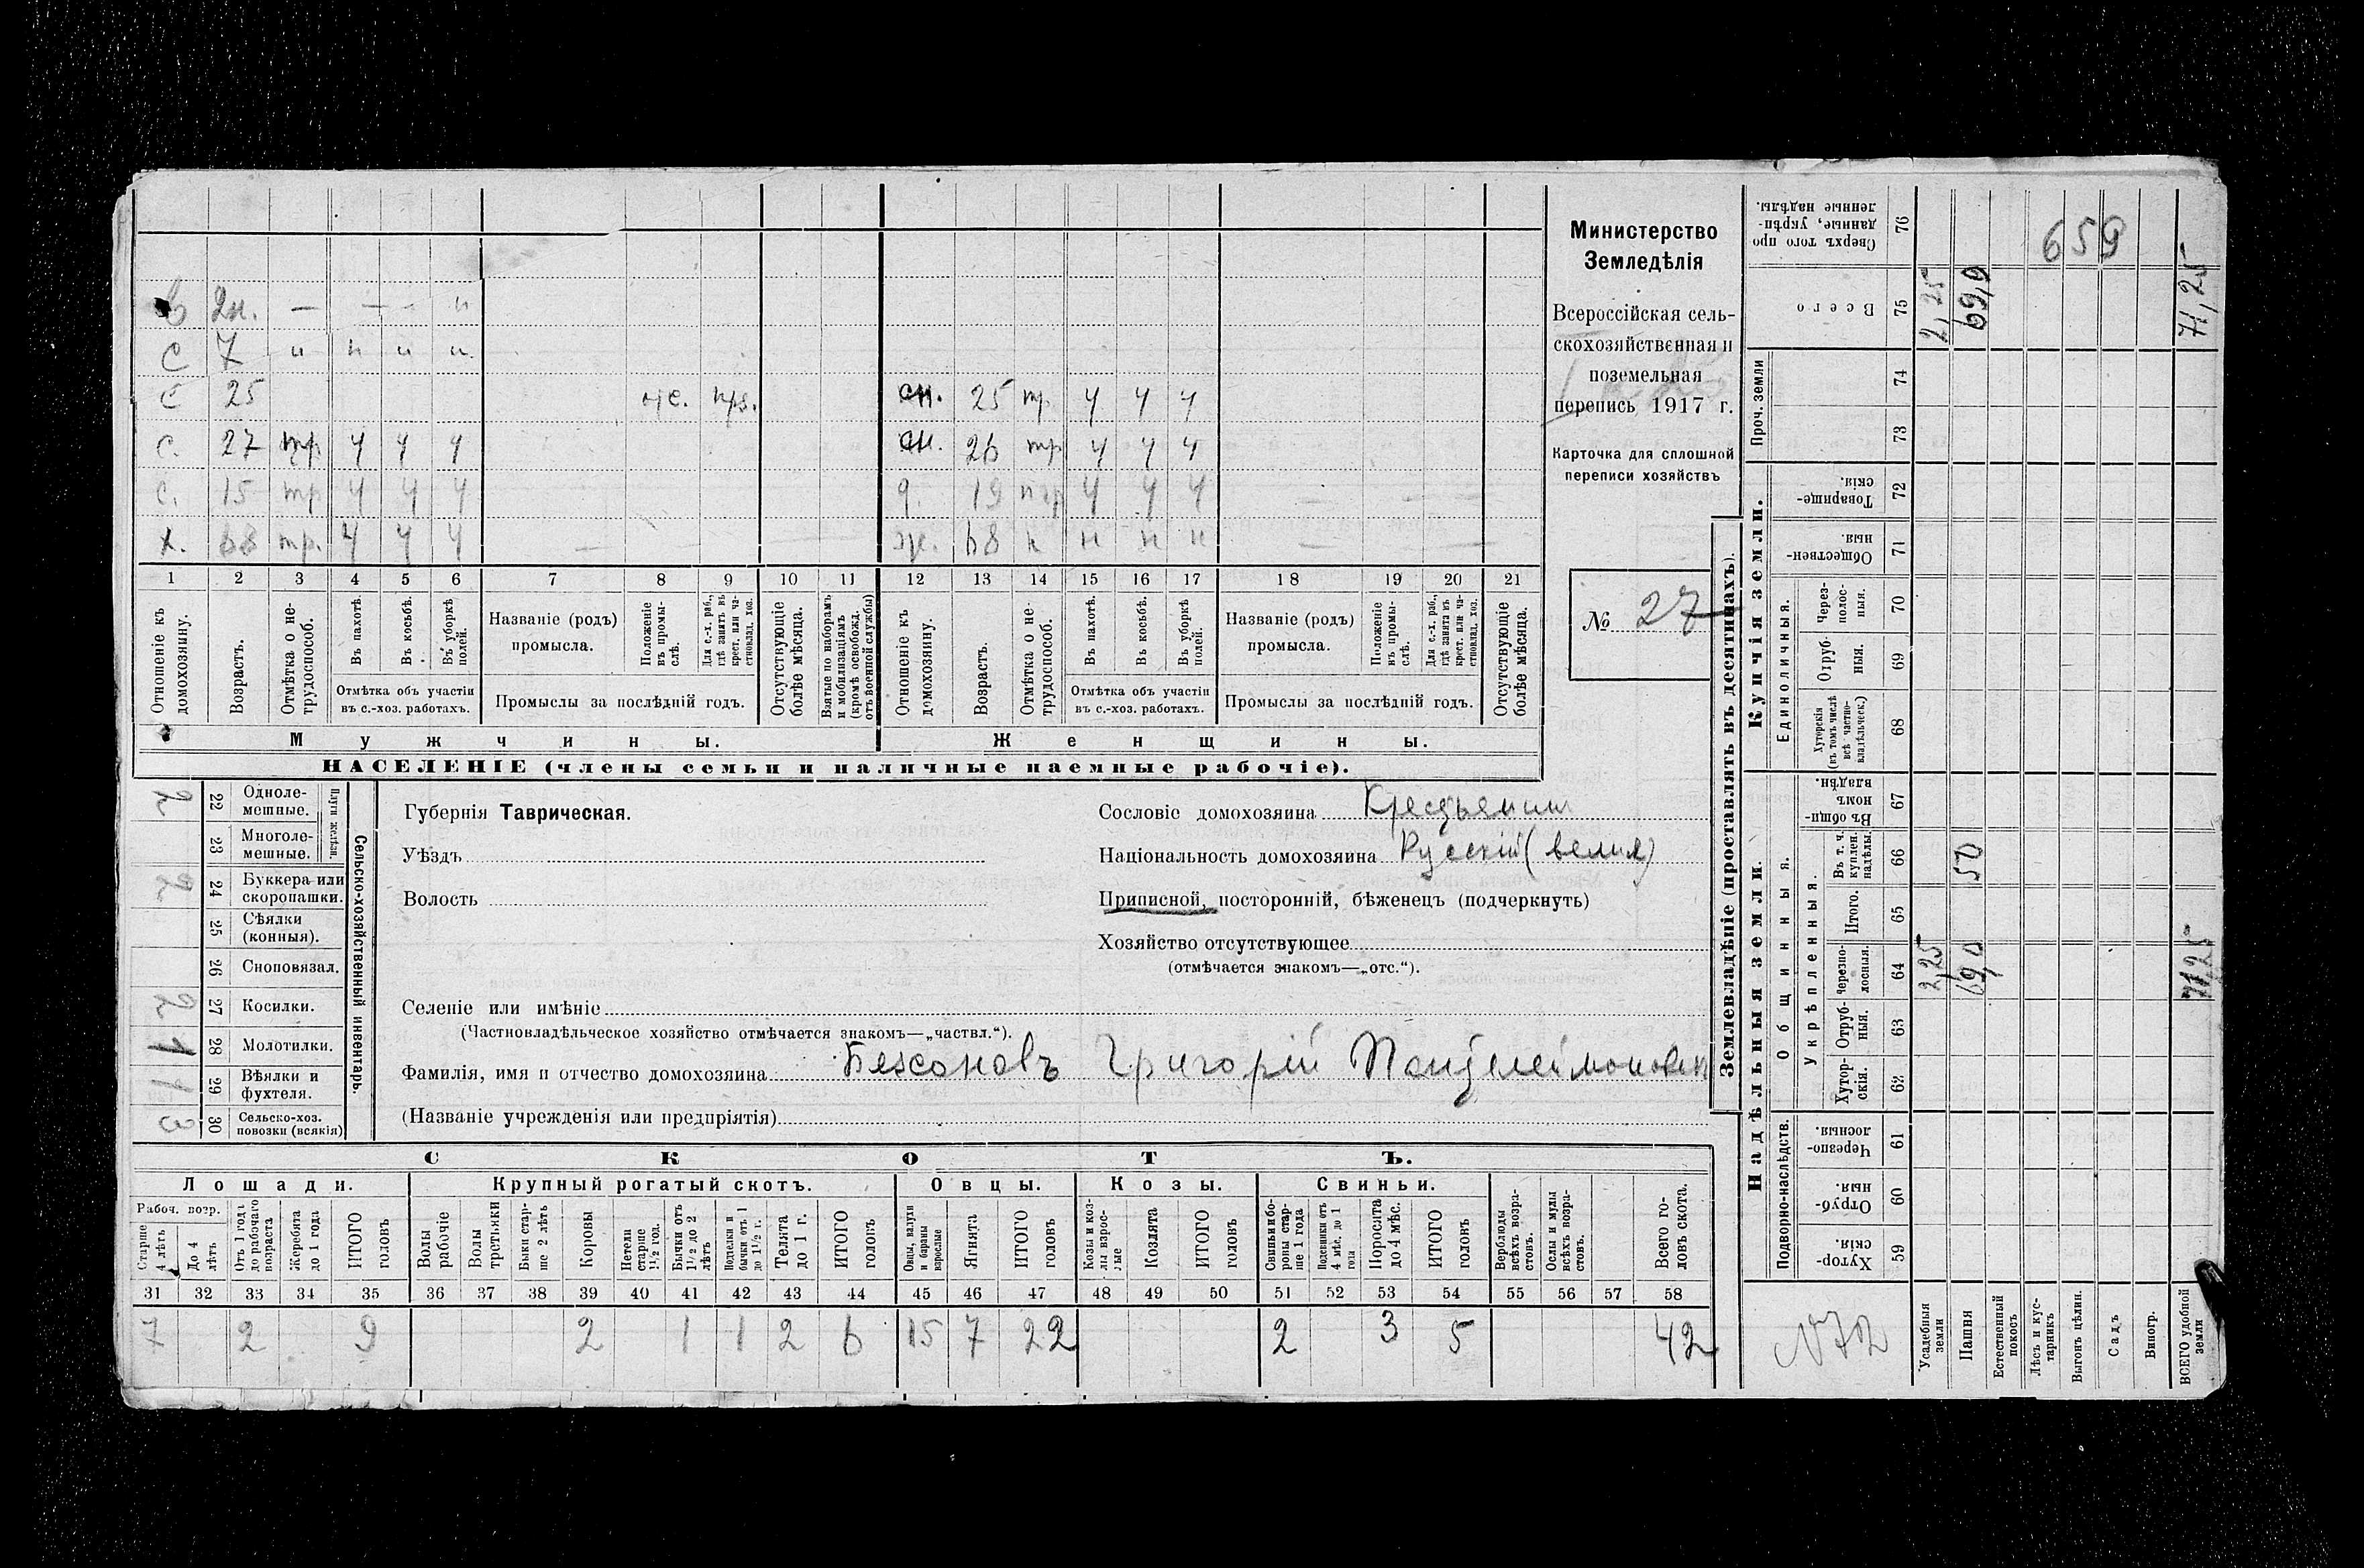 Министерство
Земледѣлія
Всероссійская сель-
скохозяйственная и
поземельная
перепись 1917 г.
Карточка для сплошной
переписи хозяйствъ
№ 27
2н. — — - н
С 7 н н н н
С 25
сн. 25 тр. ч ч ч
С. 27 тр. ч ч ч
сн. 26 тр. ч ч ч
С. 15 тр ч ч ч
19 ч ч ч
х. 68 тр. ч ч ч
68 н н н н
1 2 3 4 5 6 7 8 9 10 11 12 13 14 15 16 17 18 19 20 21
Отношеніе къ домохозяину.
Возрастъ.
Отмѣтка о не-трудоспособ.
Въ пахотѣ.
Въ косьбѣ.
Въ уборкѣ полей.
Отмѣтка объ участіи въ с.-хоз. работахъ.
Названіе (родъ) промысла.
Положеніе въ промы-слѣ.
Для с.-х. раб., гдѣ занятъ въ крест. или ча-стновлад. хоз.
Промыслы за послѣдній годъ.
Отсутствующіе болѣе мѣсяца.
Взятые по наборамъ и мобилизаціямъ (кромѣ освобожд. отъ военной службы)
Отношеніе къ домохозяину.
Возрастъ.
Отмѣтка о не-трудоспособ.
Въ пахотѣ.
Въ косьбѣ.
Въ уборкѣ полей.
Отмѣтка объ участіи въ с.-хоз. работахъ.
Названіе (родъ) промысла.
Положеніе въ промы-слѣ.
Для с.-х. раб., гдѣ занята въ крест. или ча-стновлад. хоз.
Промыслы за послѣдній годъ.
Отсутствующіе болѣе мѣсяца.
Мужчины.
Женщины.
НАСЕЛЕНІЕ (члены семьи и наличные наемные рабочіе).
Сельско-хозяйственный инвентарь.
Плуги желѣзн.
22 Одноле-мешные. 2
23 Многоле-мешные.
24 Буккера или скоропашки. 2
25 Сѣялки (конныя).
26 Сноповязал.
27 Косилки. 2
28 Молотилки. 1
29 Вѣялки и фухтеля. 1
30 Сельско-хоз. повозки (всякія) 3
Губернія Таврическая.
Уѣздъ
Волость
Сословіе домохозяина Крестьянин
Національность домохозяина Русскій (велик)
Приписной, посторонній, бѣженецъ (подчеркнуть)
Хозяйство отсутствующее
(отмѣчается знакомъ—„отс.“).
Селеніе или имѣніе
(Частновладѣльческое хозяйство отмѣчается знакомъ—„частвл.“).
Фамилія, имя и отчество домохозяина Безсоновъ Григорій Пантелеймонович
(Названіе учрежденія или предпріятія)
СКОТЪ.
Лошади. Крупный рогатый скотъ. Овцы. Козы. Свиньи.
Рабоч. возр.
Старше 4 лѣтъ
До 4 лѣтъ
Отъ 1 года до рабочаго возраста
Жеребята до 1 года
ИТОГО головъ
Волы рабочіе
Волы третьяки
Быки стар-ше 2 лѣтъ
Коровы
Нетели старше 1½ год.
Бычки отъ 1½ до 2 лѣтъ
Подтелки и бычки отъ 1 до 1½ г.
Телята до 1 г.
ИТОГО головъ
Овцы, валухи и бараны взрослые
Ягнята
ИТОГО головъ
Козы и коз-лы взрос-лые
Козлята
ИТОГО головъ
Свиньи и бо-ровы стар-ше 1 года
Подсвинки отъ 4 мѣс. до 1 года
Поросята до 4 мѣс.
ИТОГО головъ
Верблюды всѣхъ возра-стовъ.
Ослы и мулы всѣхъ возра-стовъ.
Всего го-ловъ скота.
31 32 33 34 35 36 37 38 39 40 41 42 43 44 45 46 47 48 49 50 51 52 53 54 55 56 57 58
7 2 9 2 1 1 2 6 15 7 22 2 3 5 42
Землевладѣніе (проставлять въ десятинахъ).
Надѣльныя земли.
Купчія земли.
Проч. земли
Подворно-наслѣдств.
Общинныя.
Укрѣпленныя.
Единоличныя.
Хутор-скія. 59
Отруб-ныя. 60
Черезпо-лосныя. 61
Хутор-скія. 62
Отруб-ныя. 63
Черезпо-лосныя. 64 2,25 69,0 71,25
Итого. 65
Въ т. ч. куплен. надѣлы. 66 50
Въ общи-номъ владѣн. 67
Хуторскія (въ томъ числѣ всѣ частно-владѣльческ.) 68
Отруб-ныя. 69
Через-полос-ныя. 70
Обществен-ныя. 71
Товарище-скія. 72
73
74
Всего 75 2,25 69,0 71,25
Сверхъ того про-данные, укрѣп-ленные надѣлы. 76
659
N72
Усадебныя земли
Пашня
Естественный покосъ
Лѣсъ и кус-тарникъ
Выгонъ цѣлин.
Садъ
Виногр.
ВСЕГО удобной земли